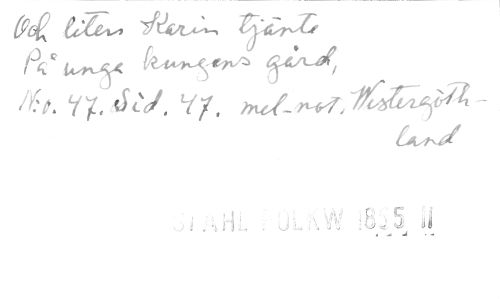 Och liten Karin tjänte
På unga kungens gård,
N:o. 47. Sid. 47. mel-not. Westergöth-
land
STAHL FOLKW 1855 II